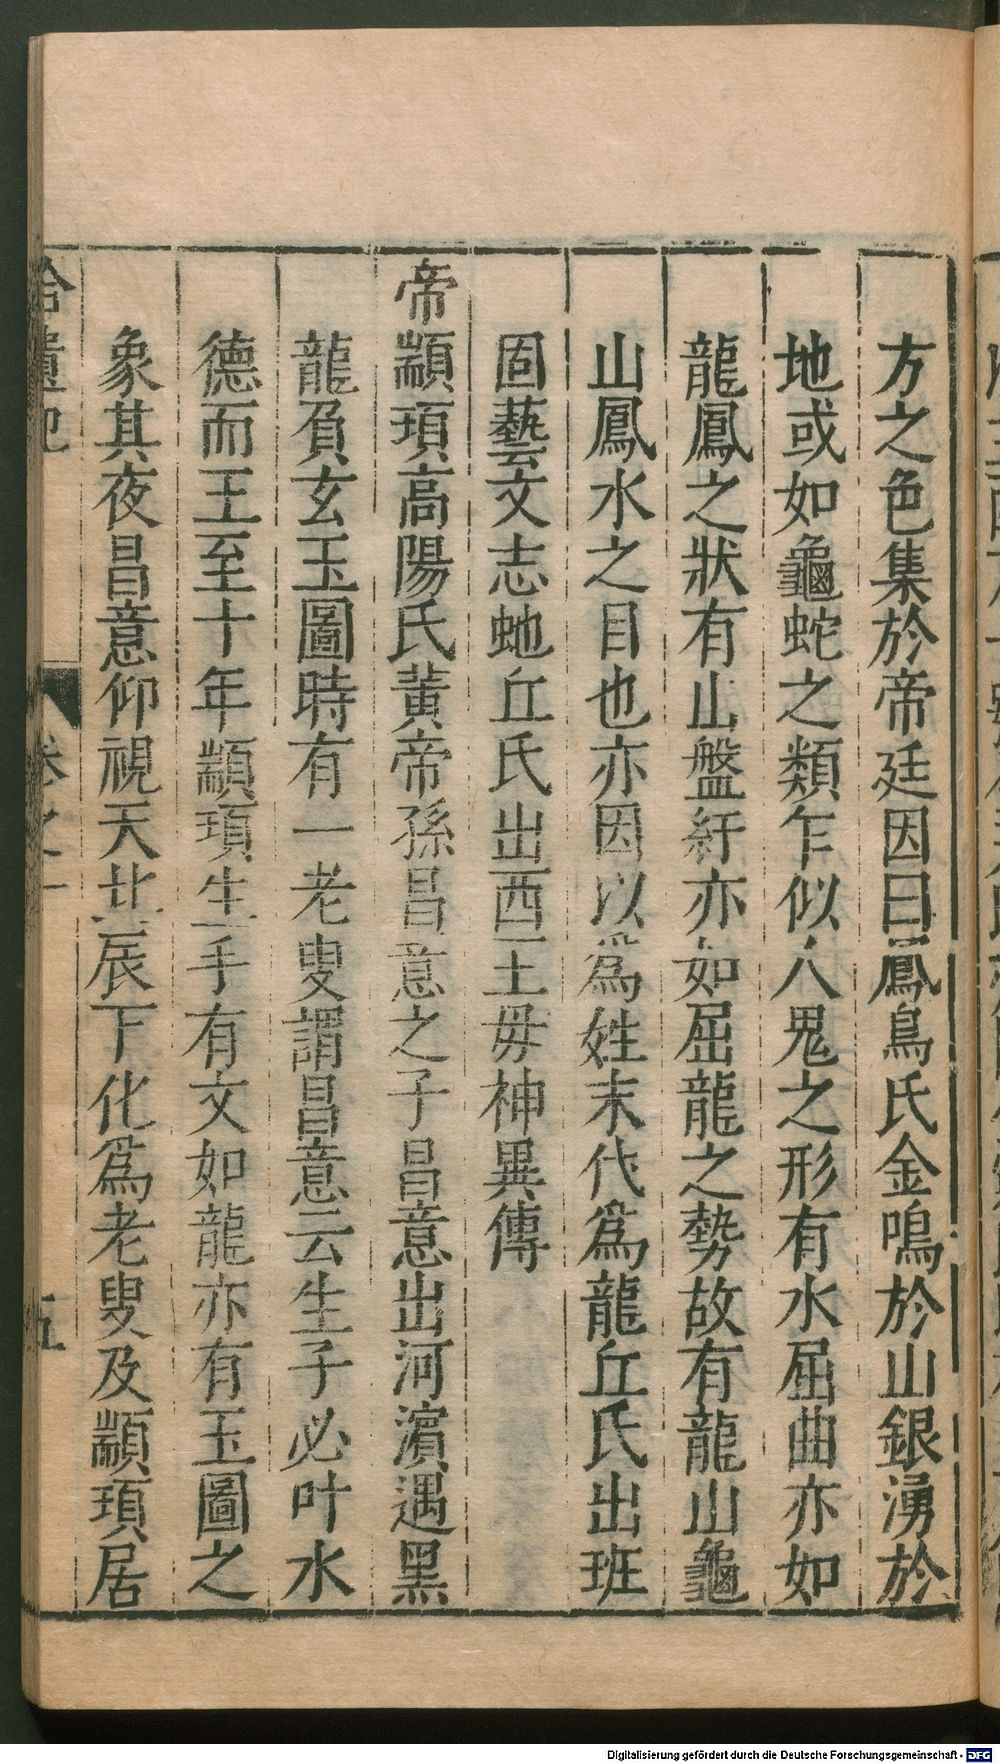 方之色集於帝廷因曰鳳鳥氏金鳴於山銀湧於
地或如龜蛇之類乍似人鬼之形有水屈曲亦如
龍鳳之狀有山盤紆亦如屈龍之勢故有龍山龜
山鳳水之目也亦因以爲姓末代爲龍丘氏出班
固藝文志虵丘氏出西王毋神異傳
帝顓頊高陽氏黃帝孫昌意之子昌意出河濱遇黑
龍負玄玉圖時有一老叟謂昌意云生子必叶水
德而王至十年顓頊生手有文如龍亦有玉圖之
象其夜昌意仰視天北辰下化爲老叟及顓頊居
拾遺記 卷之一 五
Digitalisierung gefördert durch die Deutsche Forschungsgemeinschaft - DFG